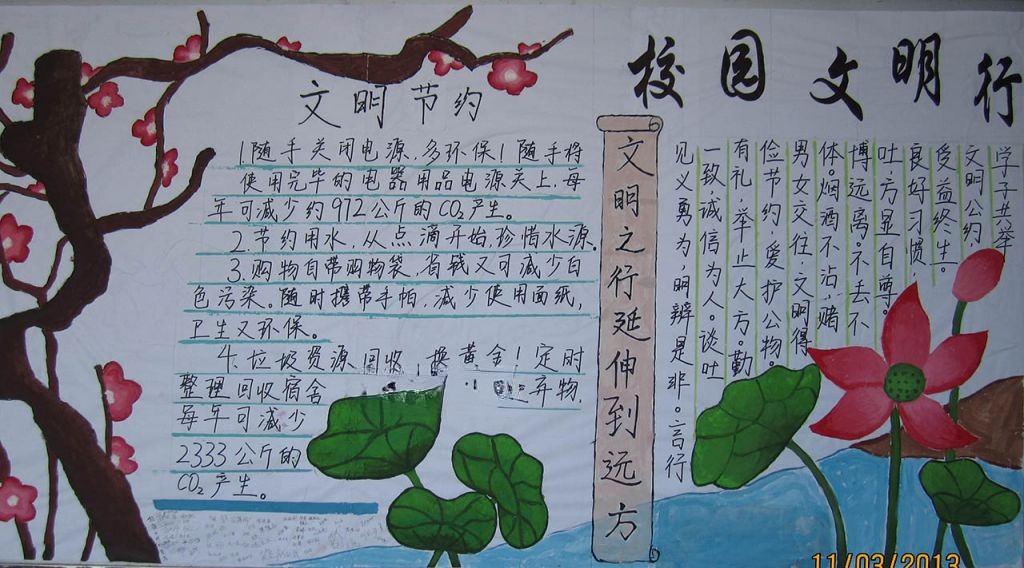 校园文明行
文明节约
1.随手关闭电源,多环保!随手将
使用完毕的电器用品电源关上,每
年可减少约972公斤的CO₂产生。
2.节约用水,从点滴开始,珍惜水源。
3.购物自带购物袋,省钱又可减少白
色污染。随时携带手帕,减少使用面纸,
卫生又环保。
4.垃圾资源回收,换黄金!定时
整理回收宿舍弃物,
每年可减少
2333公斤的
CO₂产生。
文明之行延伸到远方
见义勇为,明辨是非。言行
一致诚信为人。谈吐
有礼,举止大方。勤
俭节约,爱护公物。
男女交往,文明得
体。烟酒不沾,赌
博远离。不丢不
吐,方显自尊。
良好习惯,
受益终生。
文明公约
学子共举
11/03/2013